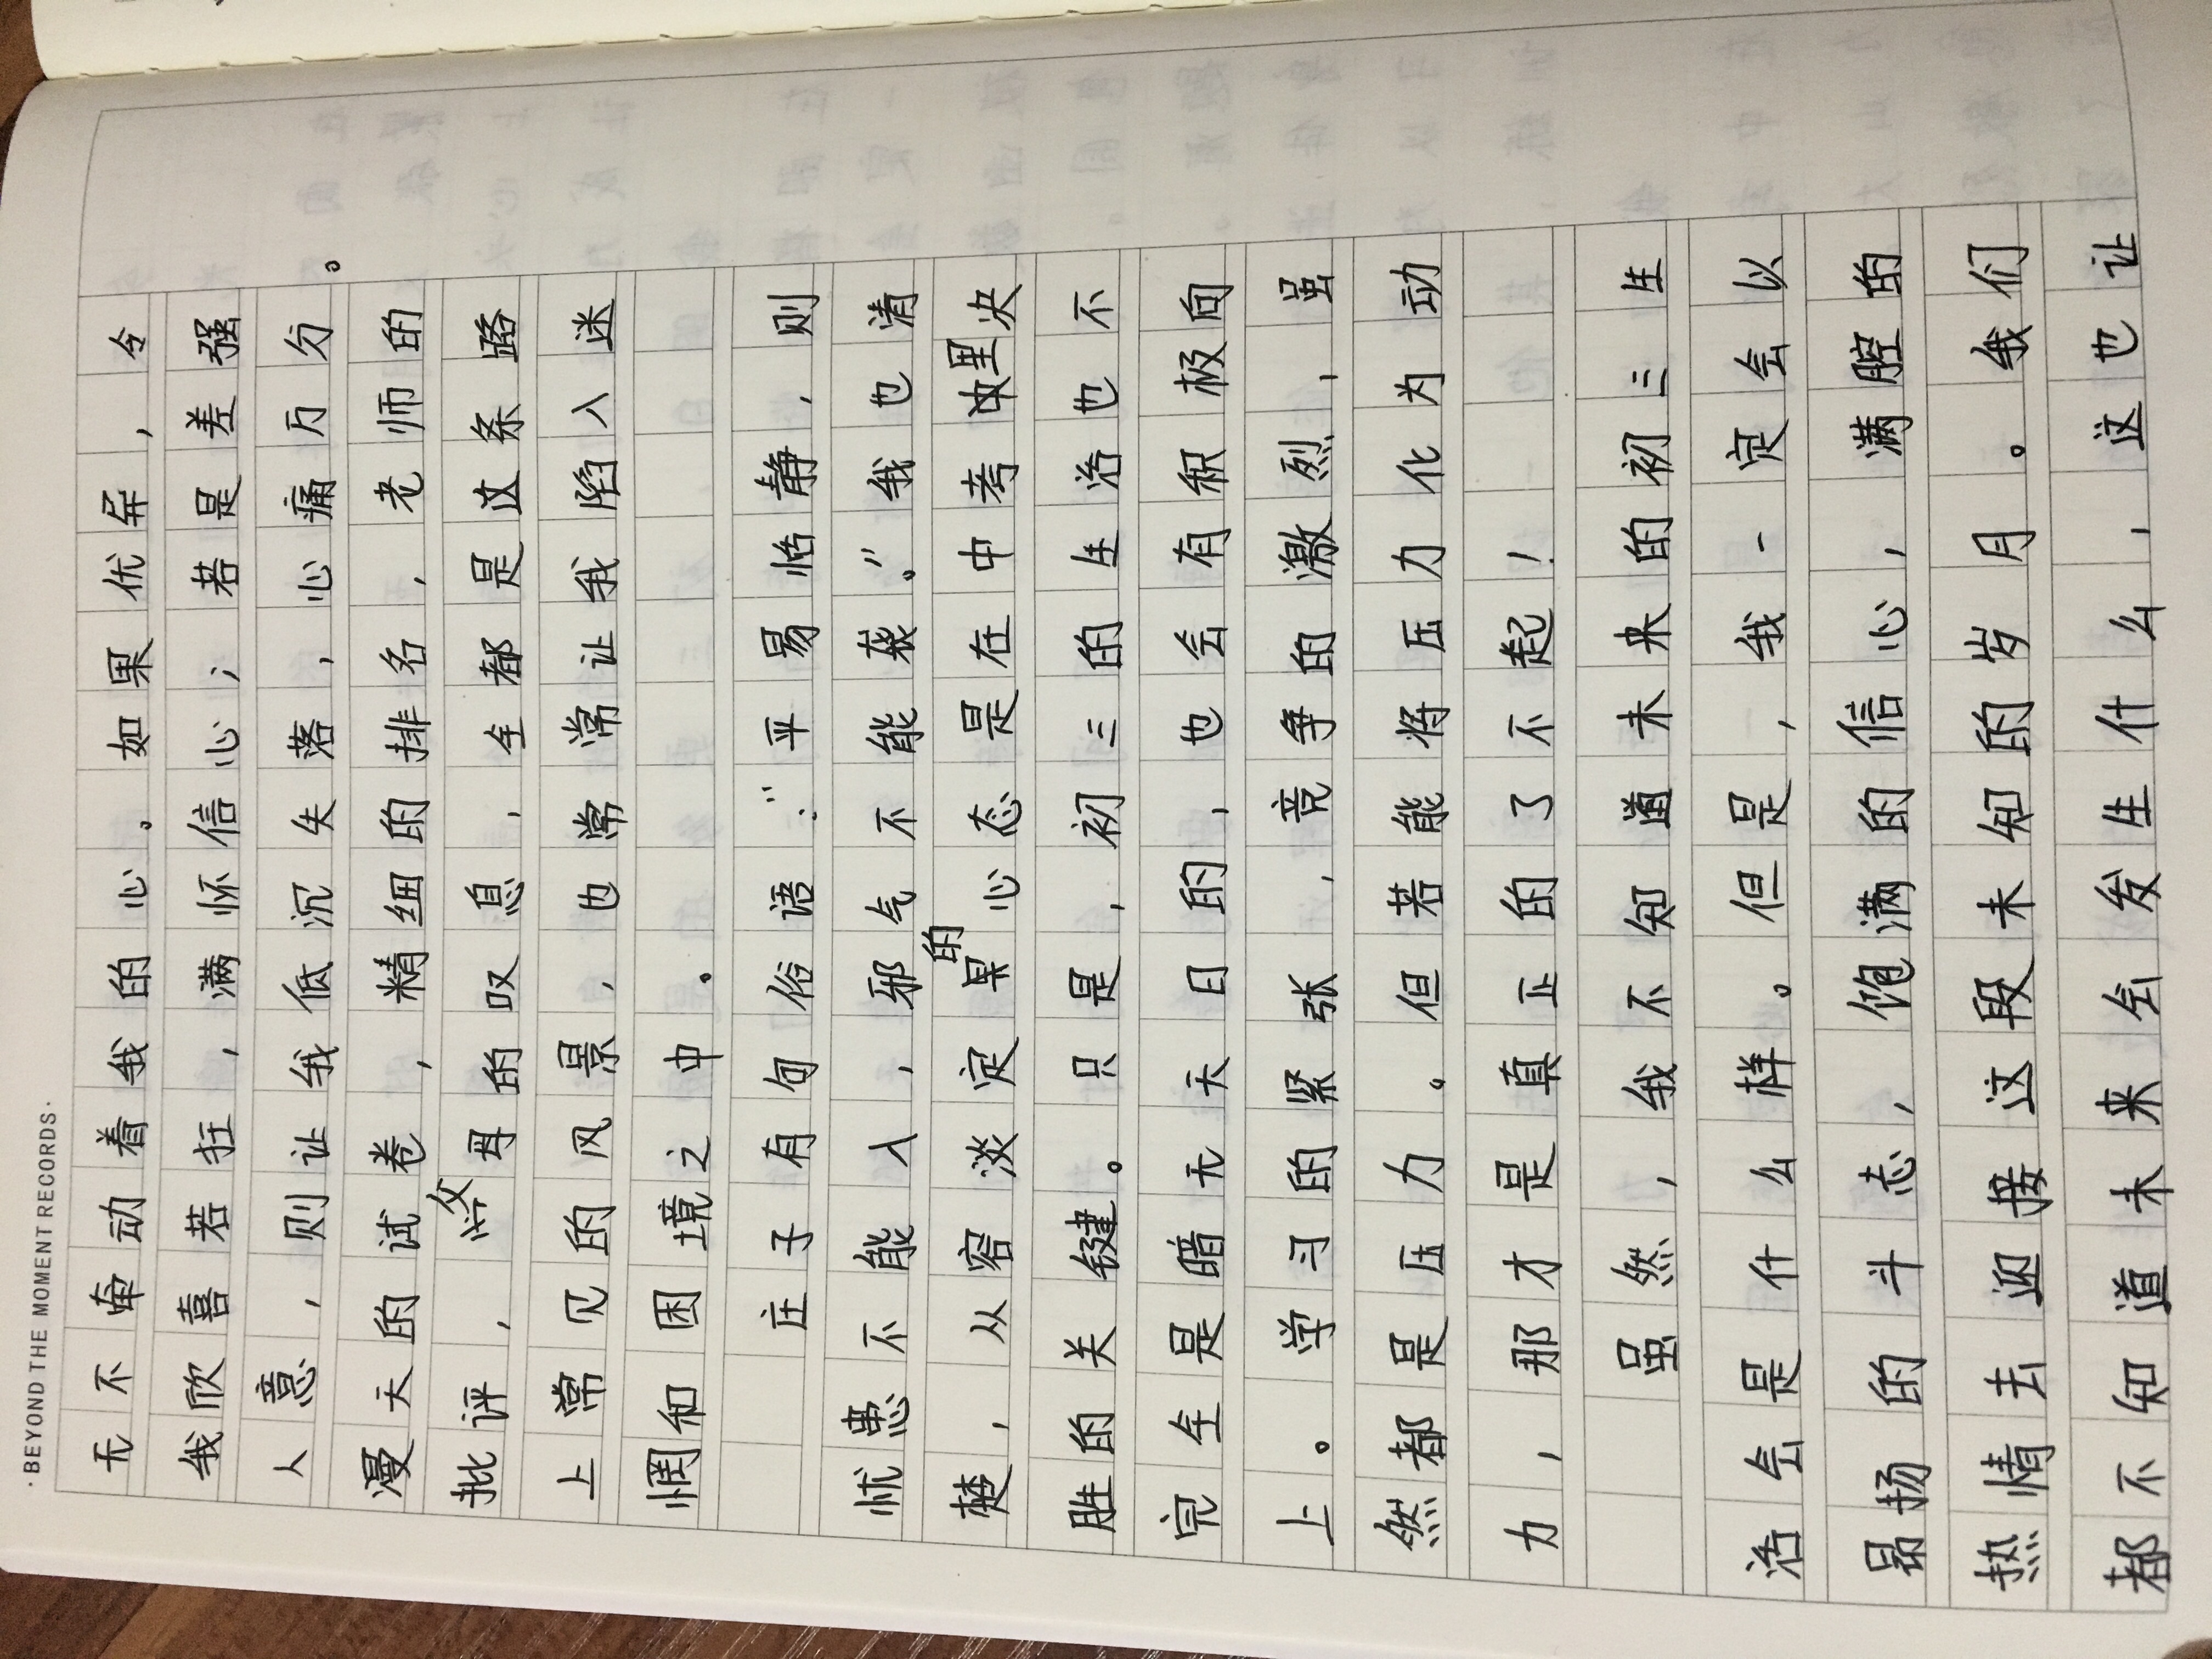 ·BEYOND THE MOMENT RECORDS·
无不牵动着我的心。如果优异，令
我欣喜若狂，满怀信心；若是差强
人意，则让我低沉失落，心痛万分。
漫天的试卷，精细的排名，老师的
批评，父母的叹息，全都是这条路
上常见的风景，也常常让我陷入迷
惘和困境之中。
庄子有句俗语：“平易恬静，则
忧患不能入，邪气不能袭。”我也清
楚，从容淡定的心态是在中考里决
胜的关键。只是，初三的生活也不
完全是暗无天日的，也会有积极向
上。学习的紧张，竞争的激烈，虽
然都是压力。但若能将压力化为动
力，那才是真正的了不起！
虽然，我不知道未来的初三生
活会是什么样。但是，我一定会以
昂扬的斗志，饱满的信心，满腔的
热情去迎接这段未知的岁月。我们
都不知道未来会发生什么，这也让